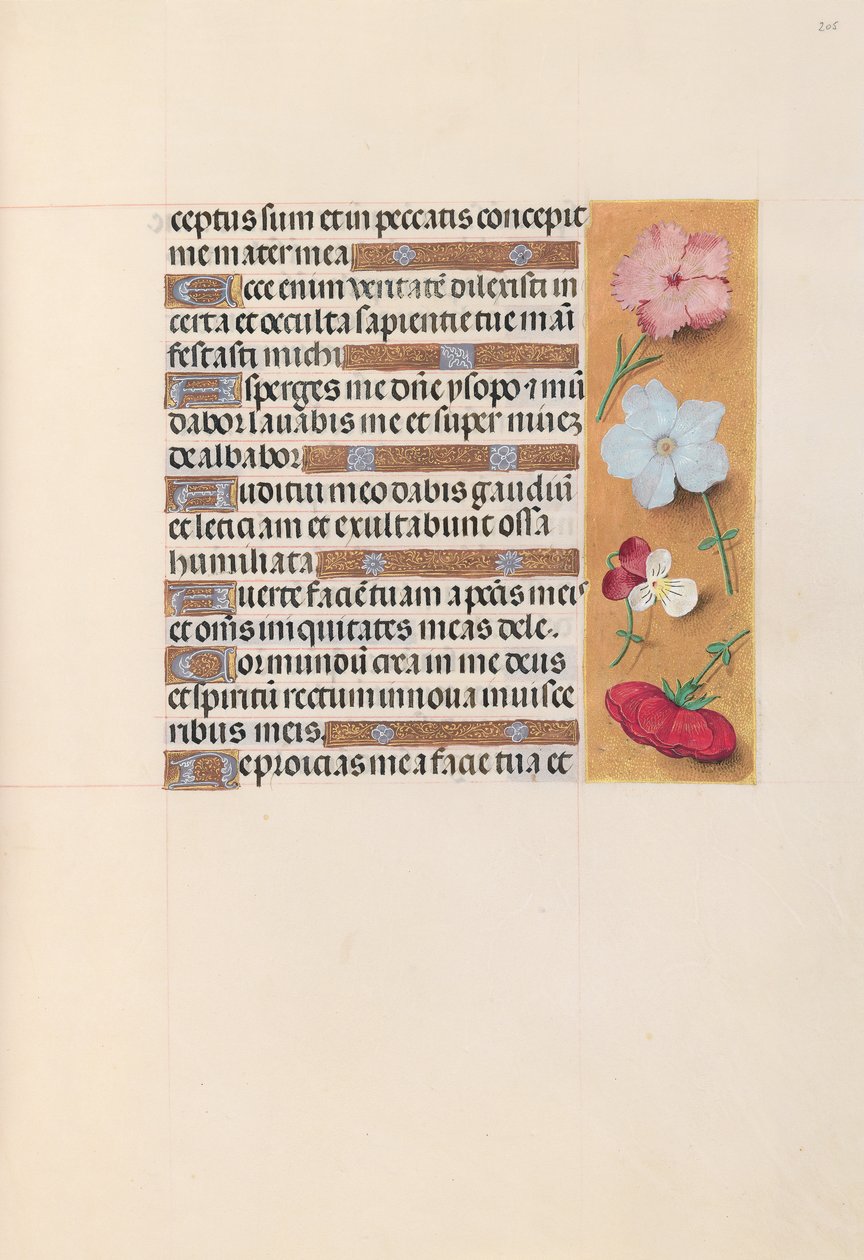 205
ceptus sum et in peccatis concepit
me mater mea
Ecce enim veritatē dilexisti in
certa et occulta sapientie tue mani
festasti michi
Asperges me dñe ysopo ⁊ mū
dabor lauabis me et super niuez
dealbabor
Auditui meo dabis gaudiū
et leticiam et exultabunt ossa
humiliata
Auerte faciē tuam a pctīs meis
et om̄s iniquitates meas dele.
Cor mundū crea in me deus
et spiritū rectum innoua in uisce
ribus meis.
Ne proicias me a facie tua et